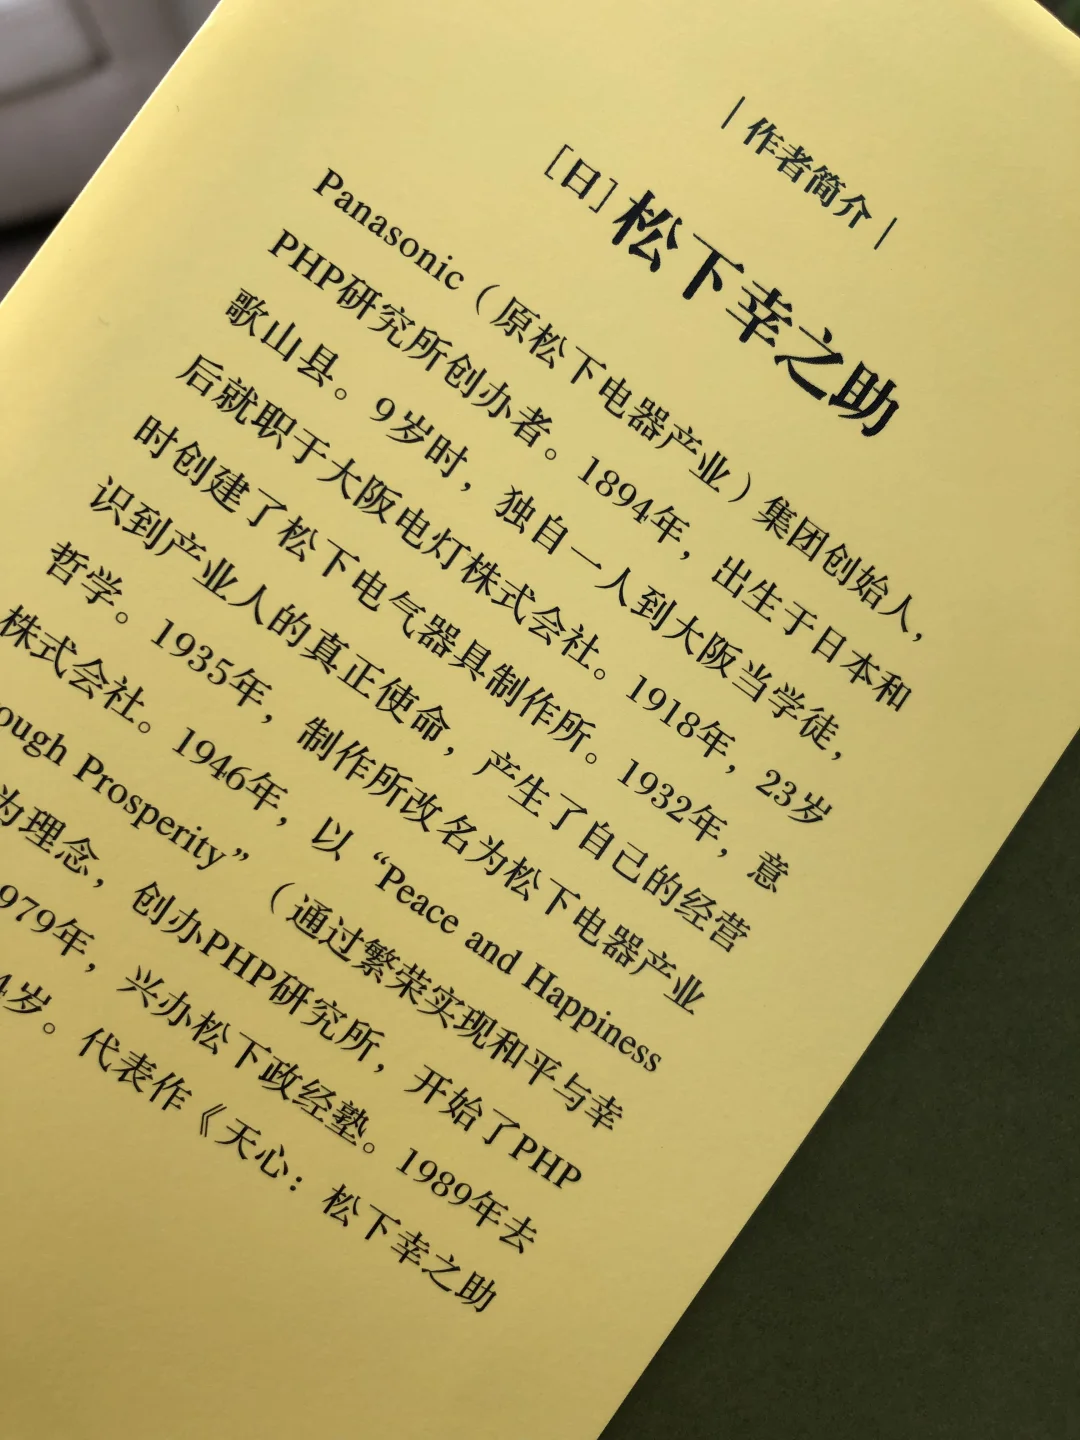 |作者简介|
[日]松下幸之助
Panasonic（原松下电器产业）集团创始人，
PHP研究所创办者。1894年，出生于日本和
歌山县。9岁时，独自一人到大阪当学徒，
后就职于大阪电灯株式会社。1918年，23岁
时创建了松下电气器具制作所。1932年，意
识到产业人的真正使命，产生了自己的经营
哲学。1935年，制作所改名为松下电器产业
株式会社。1946年，以“Peace and Happiness
ough Prosperity”（通过繁荣实现和平与幸
为理念，创办PHP研究所，开始了PHP
979年，兴办松下政经塾。1989年去
4岁。代表作《天心：松下幸之助